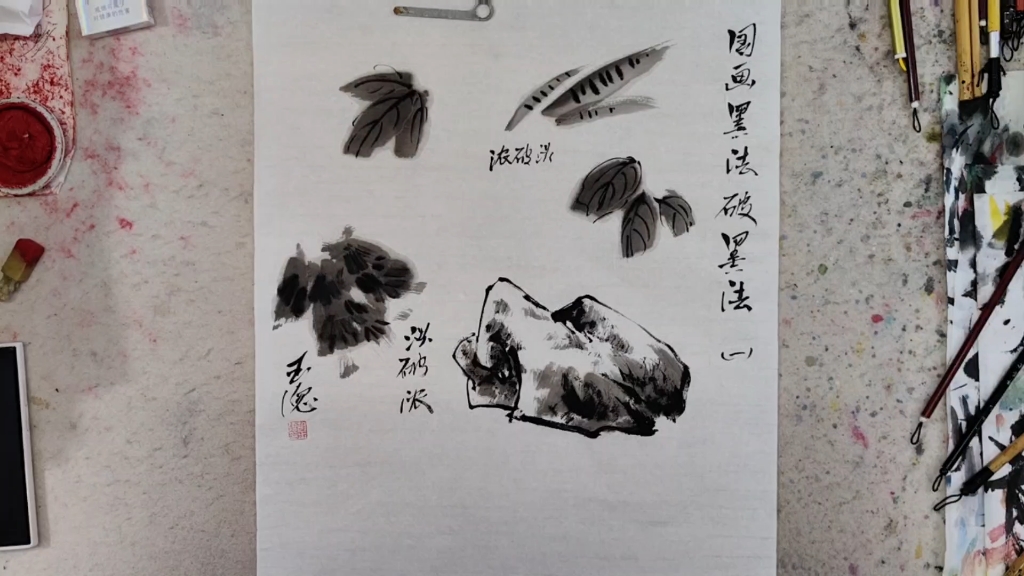 国画墨法破墨法（一）
浓破淡
淡破浓
玉德